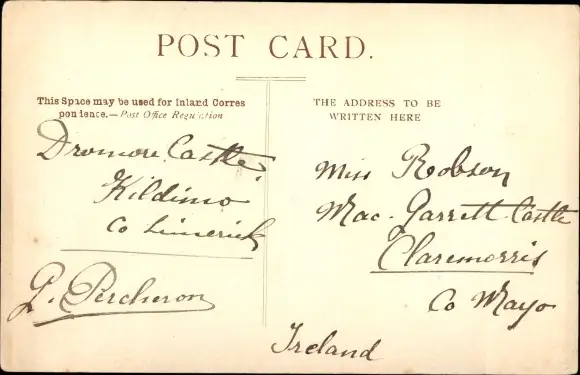 POST CARD.
This Space may be used for Inland Corres
pondence.—Post Office Regulation
Dromore Castle
Kildimo
Co Limerick
G. Percheron
THE ADDRESS TO BE
WRITTEN HERE
Miss Robson
Mac-Garrett Castle
Claremorris
Co Mayo
Ireland